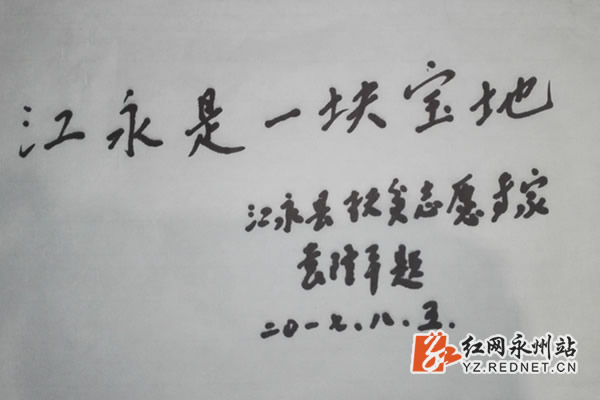 江永是一块宝地
江永县扶贫志愿专家
袁隆平题
二〇一七.八.五.
红网永州站
YZ.REDNET.CN